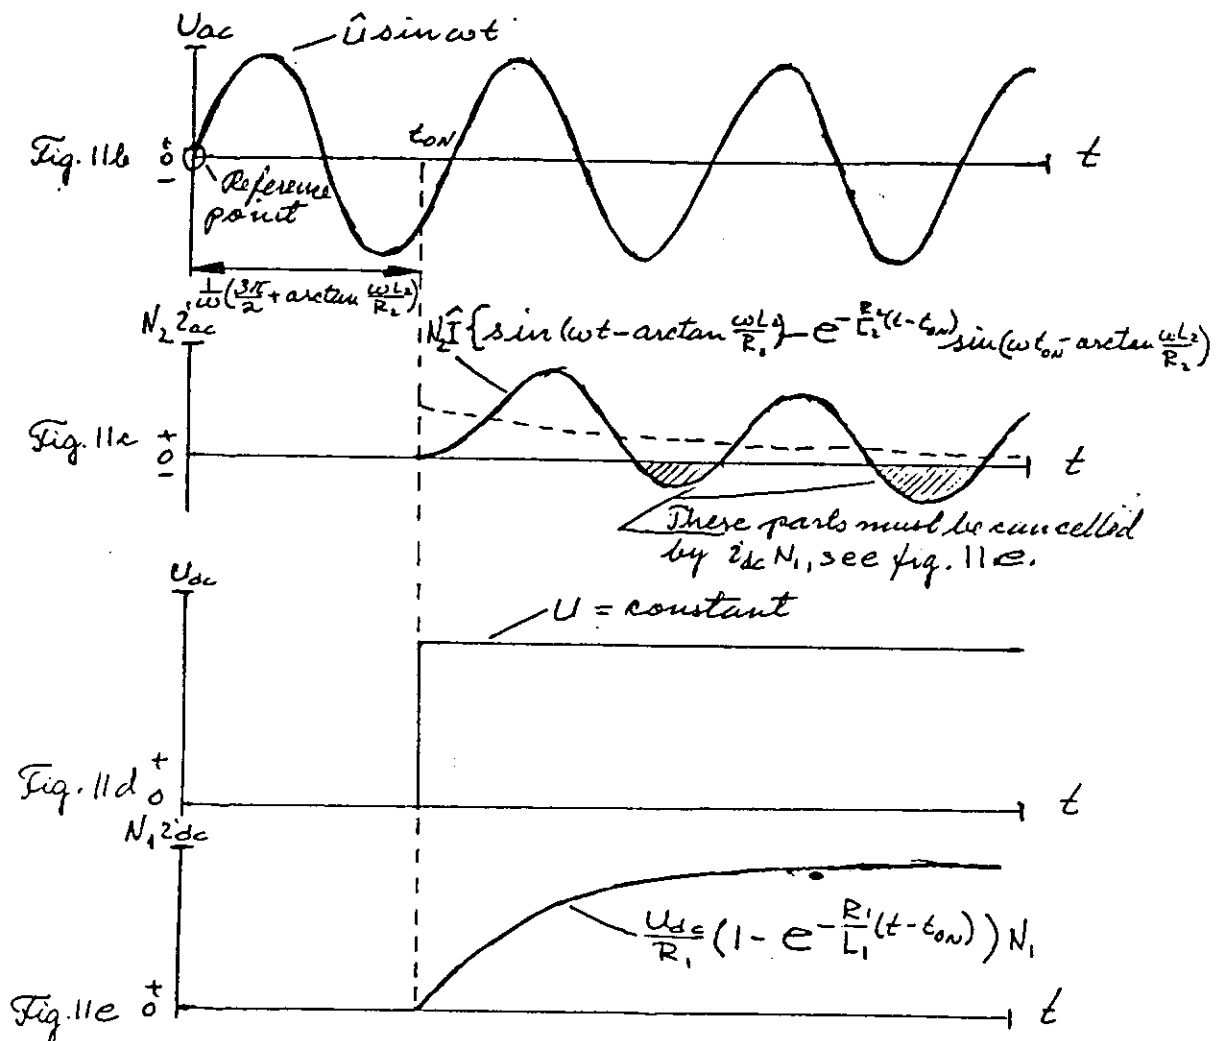 Uac
Û sin ωt
Fig. 11b
+
0
−
tON
t
Reference
point
1/ω(3π/2 + arctan ωL2/R2)
N2 iac
N2Î{sin(ωt − arctan ωL2/R2) − e^−R2/L2(t−tON) sin(ωtON − arctan ωL2/R2)
Fig. 11c
+
0
−
t
These parts must be cancelled
by idc N1, see fig. 11e.
Udc
U = constant
Fig. 11d
+
0
t
N1 idc
Udc/R1 (1 − e^−R1/L1(t−tON)) N1
Fig. 11e
+
0
t